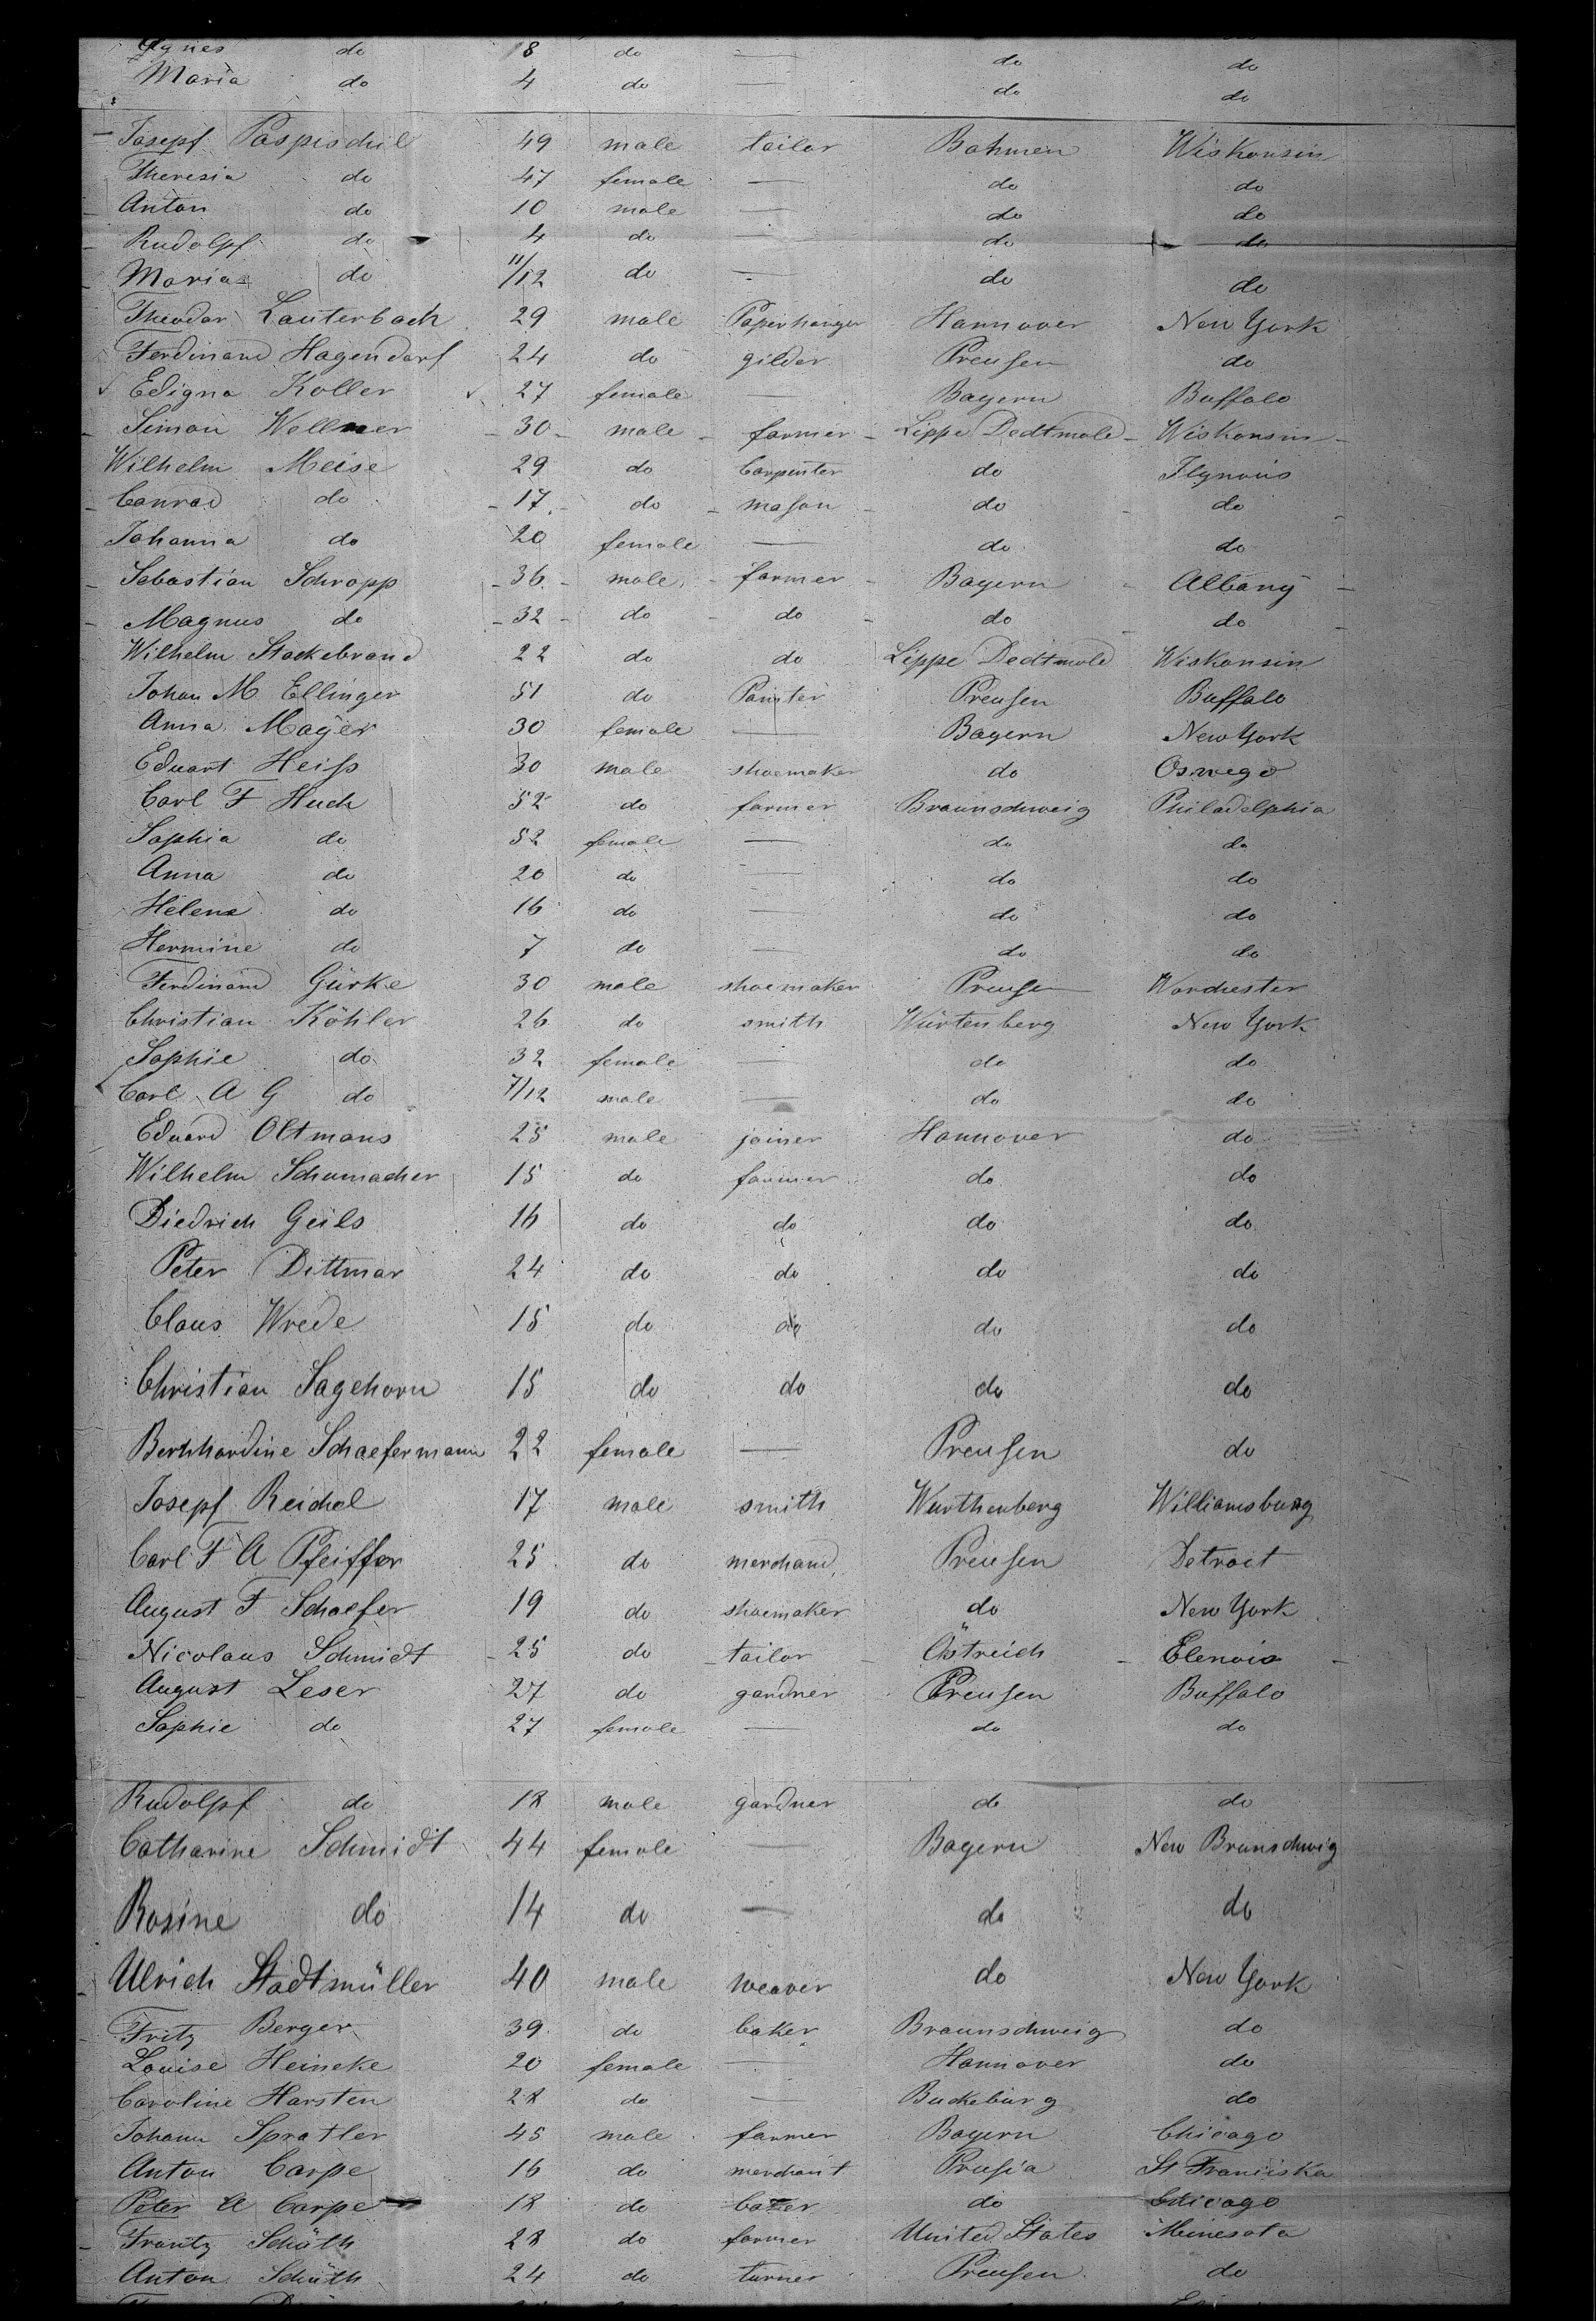 Agnes do 8 do — do do
Maria do 4 do — do do
Josepf Pospischil 49 male tailor Bohmen Wiskonsin
Theresia do 47 female — do do
Anton do 10 male — do do
Rudolpf do 4 do — do do
Maria do 11/12 do — do do
Theodor Lauterbach 29 male Paperhanger Hannover New York
Ferdinand Hagendorf 24 do gilder Preusen do
Edigna Koller 27 female — Bayern Buffalo
Simon Wellmer 30 male farmer Lippe Dedtmold Wiskonsin
Wilhelm Meise 29 do Carpenter do Ilynois
Conrad do 17 do mason do do
Johanna do 20 female — do do
Sebastian Schropp 36 male farmer Bayern Albany
Magnus do 32 do do do do
Wilhelm Stackebrand 22 do do Lippe Dedtmold Wiskonsin
Johan M Ellinger 51 do Painter Preusen Buffalo
Anna Mayer 30 female — Bayern New York
Eduart Heiss 30 male shoemaker do Oswego
Carl F Huch 52 do farmer Braunschweig Philadelphia
Sophia do 52 female — do do
Anna do 20 do — do do
Helene do 16 do — do do
Hermine do 7 do — do do
Ferdinand Gürke 30 male shoemaker Preusen Worchester
Christian Köhler 26 do smith Würtenberg New York
Sophie do 32 female — do do
Carl A G do 7/12 male — do do
Eduard Oltmans 25 male joiner Hannover do
Wilhelm Schumacher 15 do farmer do do
Diedrich Geils 16 do do do do
Peter Dittmar 24 do do do do
Claus Wrede 15 do do do do
Christian Sagehorn 15 do do do do
Bernhardine Schaefermann 22 female — Preusen do
Josepf Reichel 17 male smith Wurthenberg Williamsburg
Carl F A Pfeiffer 25 do merchand Preusen Detroit
August F Schaefer 19 do shoemaker do New York
Nicolaus Schmidt 25 do tailor Östreich Elenois
August Leser 27 do gardner Preusen Buffalo
Sophie do 27 female — do do
Rudolpf do 18 male gardner do do
Catharine Schmidt 44 female — Bayern New Brunschwig
Rosine do 14 do — do do
Ulrich Stadtmüller 40 male weaver do New York
Fritz Berger 39 do baker Braunschweig do
Louise Heineke 20 female — Hannover do
Caroline Harsten 28 do — Buckeburg do
Johann Spratler 45 male farmer Bayern Chicago
Anton Carpe 16 do merchant Prusia St Franciska
Peter A Carpe 18 do do Chicago
Frantz Schüth 28 do farmer United States Minesota
Anton Schüth 24 do turner Preusen do